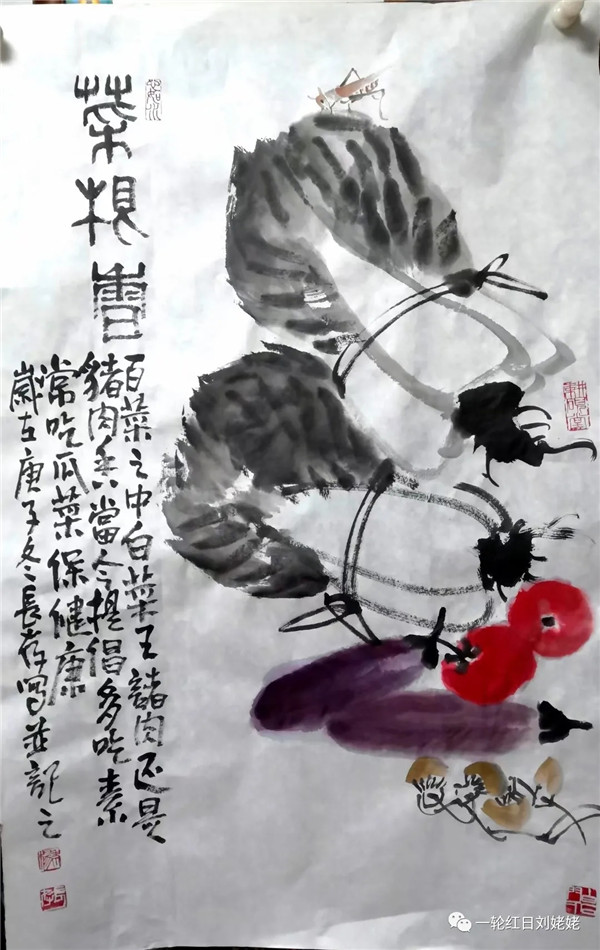 菜根香
百菜之中白菜王諸肉还是
豬肉香當今提倡多吃素
常吃瓜菜保健康
歲在庚子冬長存寫並記之
一轮红日刘姥姥